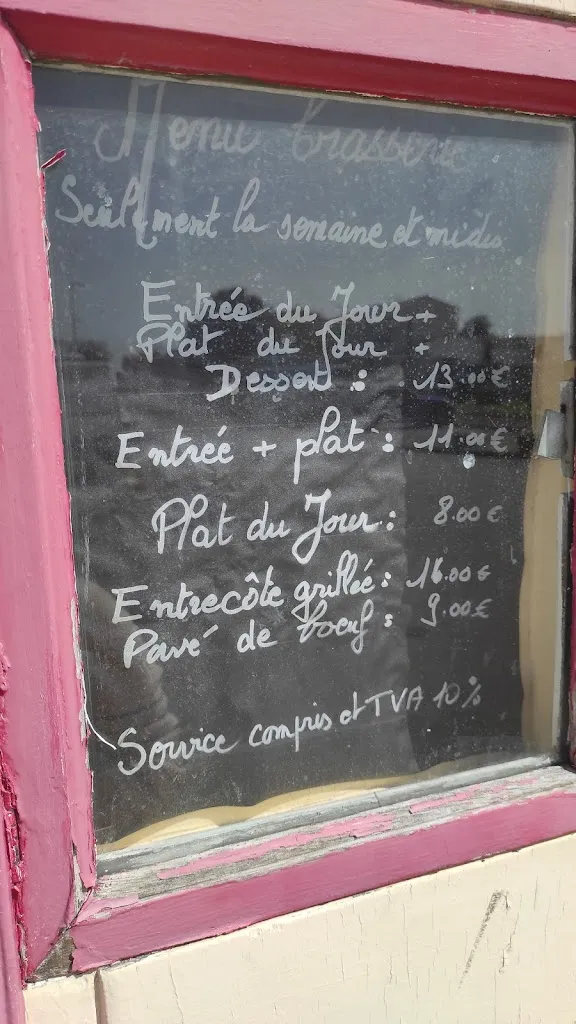 Menu brasserie
Seulement la semaine et midis
Entrée du Jour +
Plat du Jour +
Dessert : 13.00 €
Entrée + plat : 11.00 €
Plat du Jour : 8.00 €
Entrecôte grillée : 16.00 €
Pavé de boeuf : 9.00 €
Service compris et TVA 10%